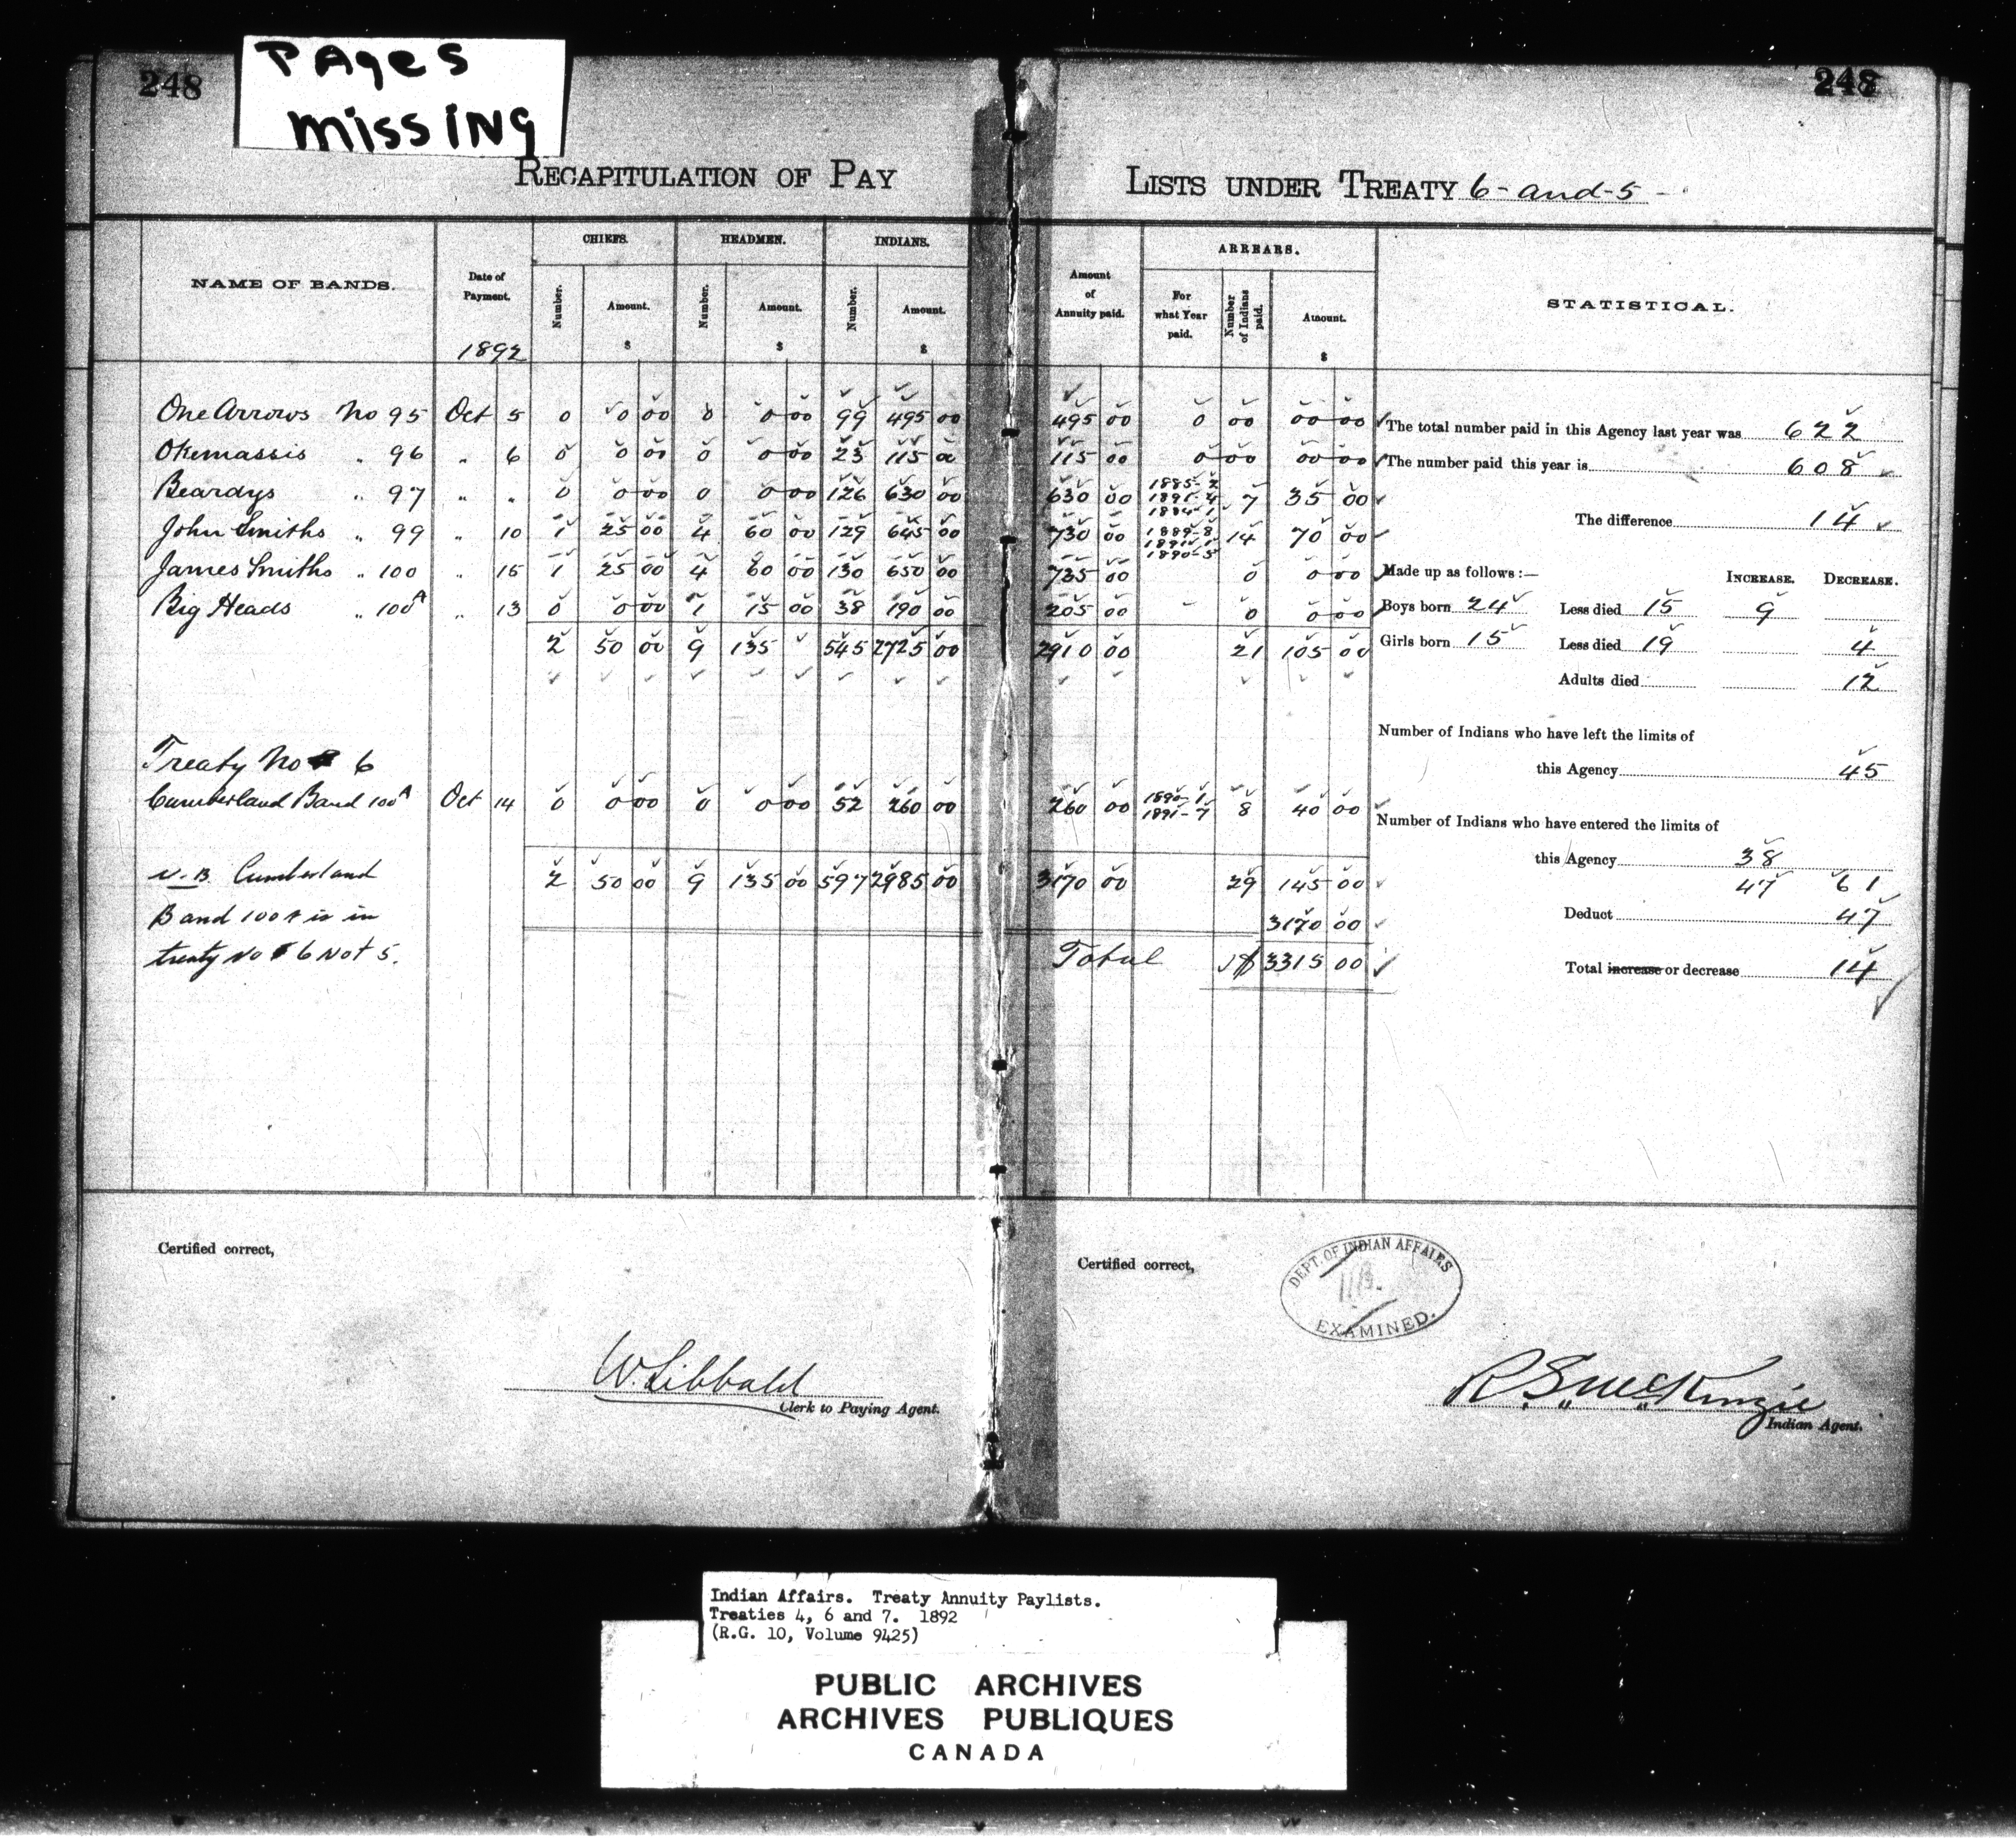 248
PAges
missiNg
248
RECAPITULATION OF PAY LISTS UNDER TREATY 6-and-5-
NAME OF BANDS. Date of Payment. 1892 CHIEFS. Number. Amount. $ HEADMEN. Number. Amount. $ INDIANS. Number. Amount. $ Amount of Annuity paid. ARREARS. For what Year paid. Number of Indians paid. Amount. $ STATISTICAL.
One Arrows No 95 Oct 5 0 0 00 0 0 00 99 495 00 495 00 0 00 00 00
Okemassis " 96 " 6 0 0 00 0 0 00 23 115 00 115 00 0 00 00 00
Beardys " 97 " " 0 0 00 0 0 00 126 630 00 630 00 1885-2 1891-4 1884-1 7 35 00
John Smiths " 99 " 10 1 25 00 4 60 00 129 645 00 730 00 1889-8 1891-1 1890-5 14 70 00
James Smiths " 100 " 15 1 25 00 4 60 00 130 650 00 735 00 0 0 00
Big Heads " 100A " 13 0 0 00 1 15 00 38 190 00 205 00 - 0 0 00
2 50 00 9 135 545 2725 00 2910 00 21 105 00
Treaty No 6
Cumberland Band 100A Oct 14 0 0 00 0 0 00 52 260 00 260 00 1890-1 1891-7 8 40 00
N.B. Cumberland
Band 100A is in
treaty No 6 Not 5.
2 50 00 9 135 00 597 2985 00 3170 00 29 145 00
3170 00
Total $ 3315 00
The total number paid in this Agency last year was 622
The number paid this year is 608
The difference 14
Made up as follows:— INCREASE. DECREASE.
Boys born 24 Less died 15 9
Girls born 15 Less died 19 4
Adults died 12
Number of Indians who have left the limits of
this Agency 45
Number of Indians who have entered the limits of
this Agency 38
47 61
Deduct 47
Total increase or decrease 14
Certified correct,
W. Sibbald
Clerk to Paying Agent.
Certified correct,
DEPT. OF INDIAN AFFAIRS
EXAMINED.
R. S. McKenzie
Indian Agent.
Indian Affairs. Treaty Annuity Paylists.
Treaties 4, 6 and 7. 1892
(R.G. 10, Volume 9425)
PUBLIC ARCHIVES
ARCHIVES PUBLIQUES
CANADA